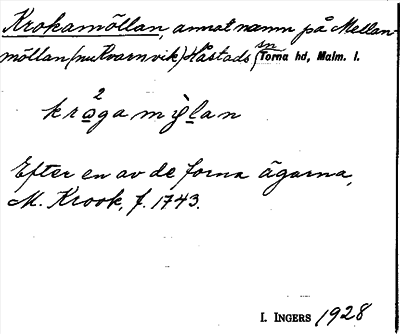 Krokamöllan, annat namn på Mellan-
möllan (nu Kvarnvik) Håstads sn Torna hd, Malm. l.
2
krågamỳlan
Efter en av de forna ägarna,
M. Krook, f. 1743.
I. INGERS 1928